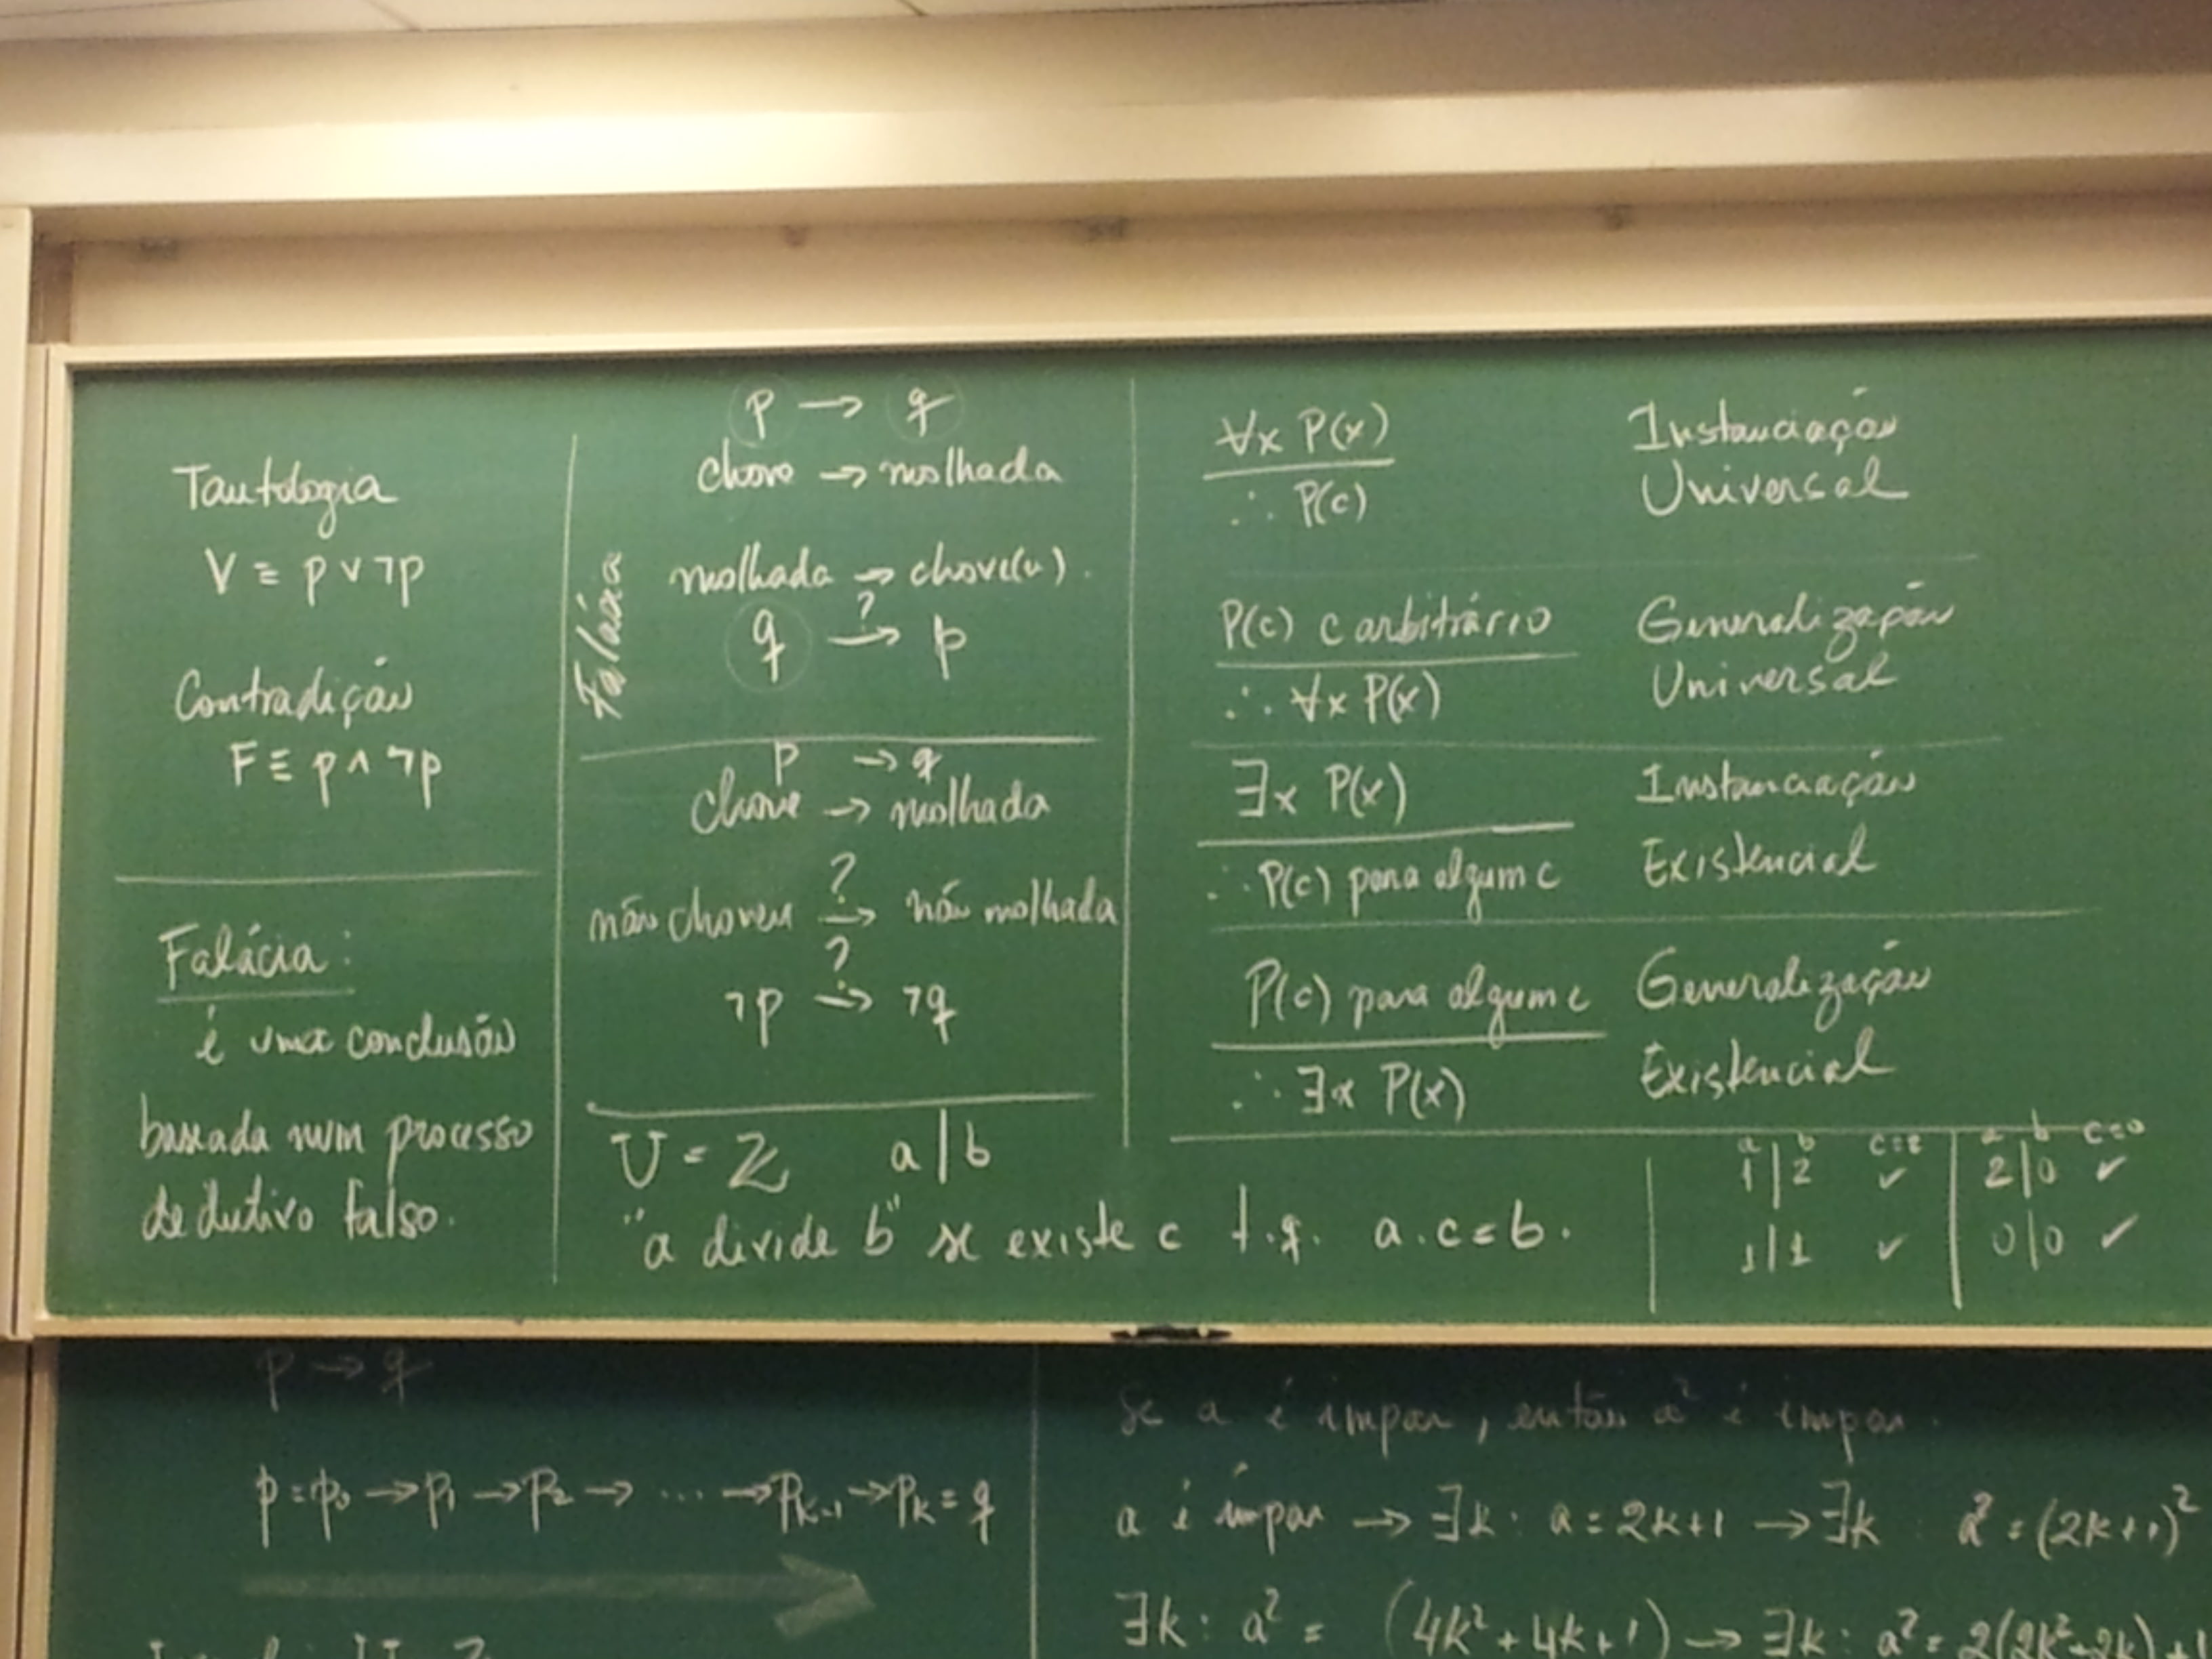 Tautologia
V ≡ p ∨ ¬p
Contradição
F ≡ p ∧ ¬p
Falácia:
é uma conclusão
baseada num processo
dedutivo falso.
Falácia
p → q
chove → molhada
molhada → chove(u).
q →? p
p → q
chove → molhada
não choveu →? não molhada
¬p →? ¬q
U = ℤ a | b
"a divide b" se existe c t.q. a.c = b.
∀x P(x) Instanciação
∴ P(c) Universal
P(c) c arbitrário Generalização
∴ ∀x P(x) Universal
∃x P(x) Instanciação
∴ P(c) para algum c Existencial
P(c) para algum c Generalização
∴ ∃x P(x) Existencial
a b
1|2 ✓
1|1 ✓
a b c=0
2|0 ✓
0|0 ✓
p → q
p = p₀ → p₁ → p₂ → ... → pₖ₋₁ → pₖ = q
Se a é ímpar, então a² é ímpar.
a é ímpar → ∃k : a = 2k+1 → ∃k : a² = (2k+1)²
∃k : a² = (4k² + 4k + 1) → ∃k : a² = 2(2k²+2k)+1